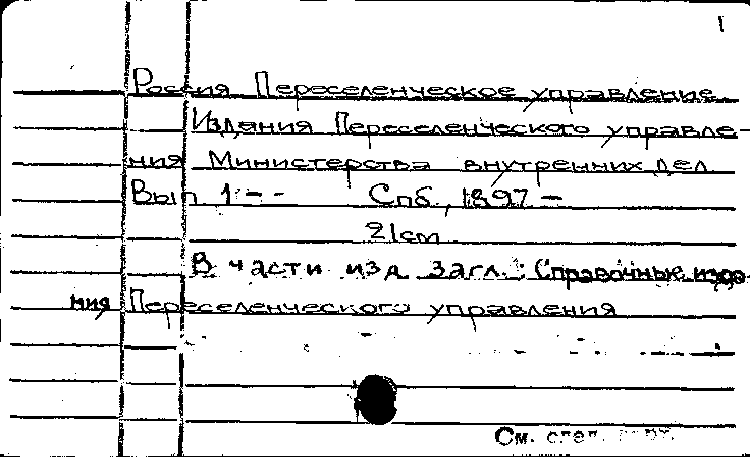 1
Россия Переселенческое управление
Издания Переселенческого управле-
ния Министерства внутренних дел
Вып 1 - - Спб., 1897 -
21 cm.
В части изд. загл.: Справочные изда-
ния Переселенческого управления
См. след. карт.